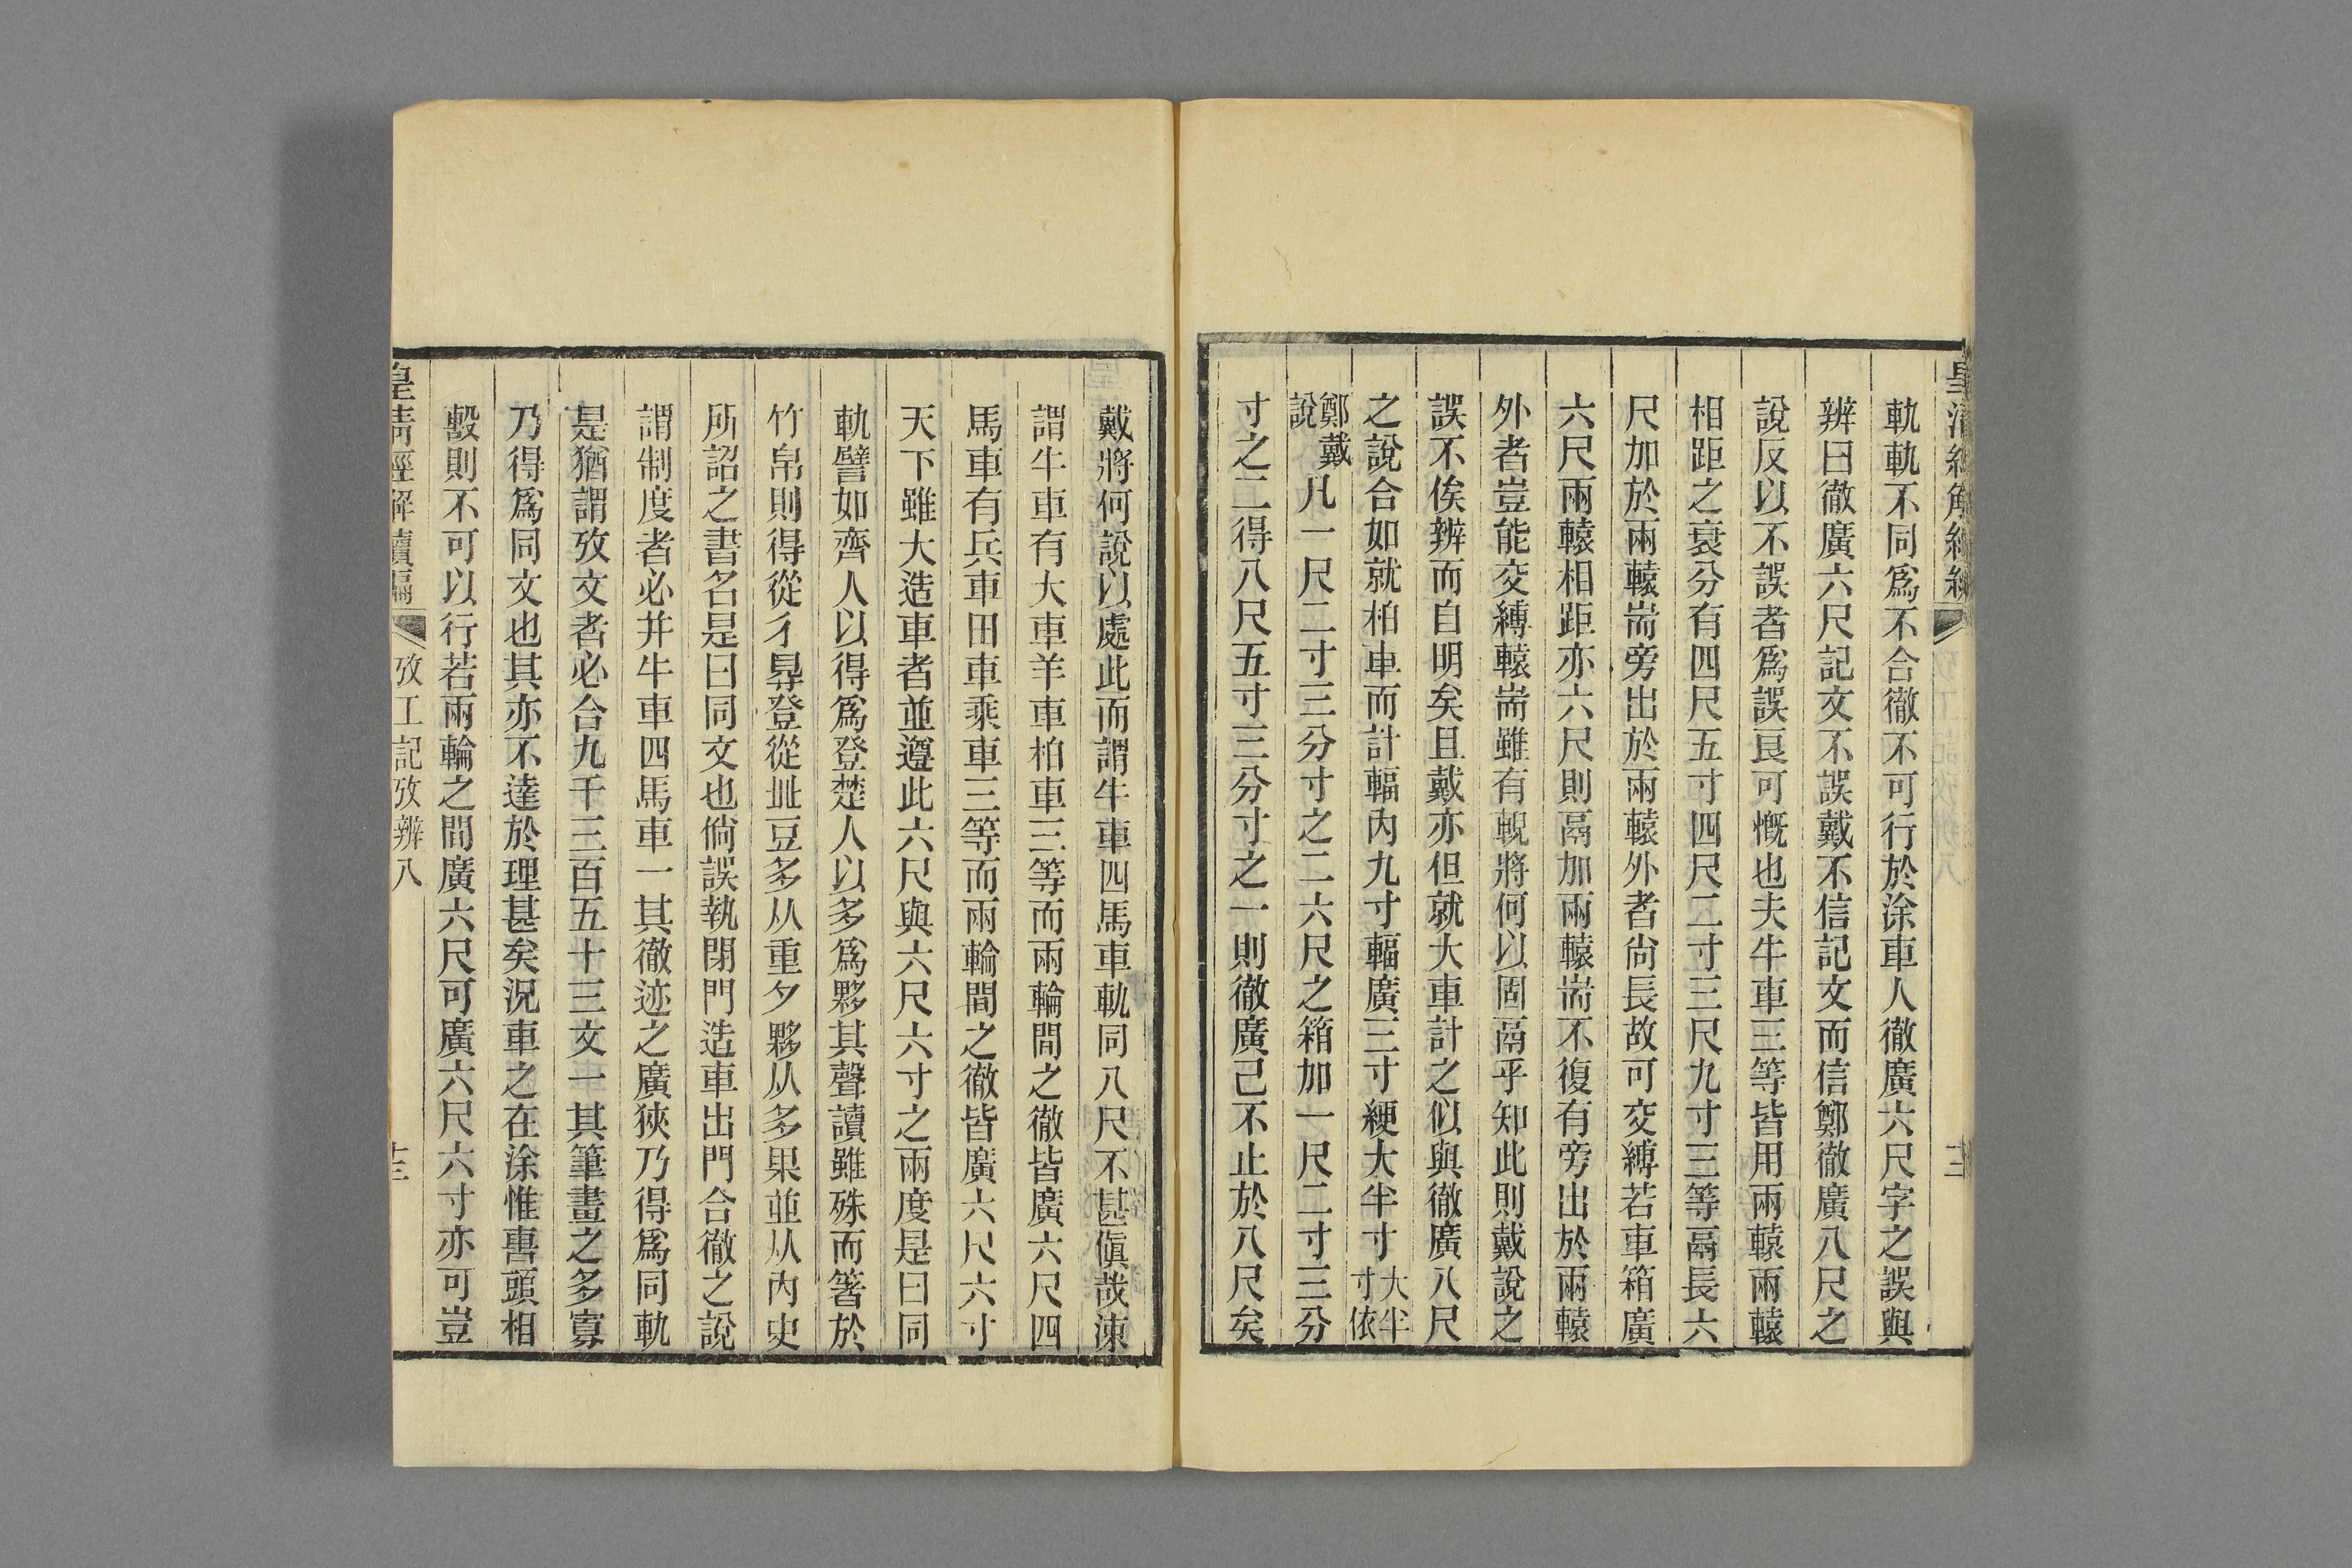 軌軌不同爲不合徹不可行於涂車人徹廣六尺字之誤與
辨曰徹廣六尺記文不誤戴不信記文而信鄭徹廣八尺之
說反以不誤者爲誤良可慨也夫牛車三等皆用兩轅兩轅
相距之衰分有四尺五寸四尺二寸三尺九寸三等鬲長六
尺加於兩轅耑旁出於兩轅外者尙長故可交縛若車箱廣
六尺兩轅相距亦六尺則鬲加兩轅耑不復有旁出於兩轅
外者豈能交縛轅耑雖有輗將何以固鬲乎知此則戴說之
誤不俟辨而自明矣且戴亦但就大車計之似與徹廣八尺
之說合如就柏車而計輻內九寸輻廣三寸綆大半寸大半寸依
鄭戴說凡一尺二寸三分寸之二六尺之箱加一尺二寸三分
寸之二得八尺五寸三分寸之一則徹廣己不止於八尺矣
戴將何說以處此而謂牛車四馬車軌同八尺不甚愼哉涷
謂牛車有大車羊車柏車三等而兩輪間之徹皆廣六尺四
馬車有兵車田車乘車三等而兩輪間之徹皆廣六尺六寸
天下雖大造車者並遵此六尺與六尺六寸之兩度是曰同
軌譬如齊人以得爲登楚人以多爲夥其聲讀雖殊而箸於
竹帛則得從彳㝵登從癶豆多从重夕夥从多果並从內史
所詔之書名是曰同文也倘誤執閉門造車出門合徹之說
謂制度者必并牛車四馬車一其徹迹之廣狹乃得爲同軌
是猶謂攷文者必合九千三百五十三文一其筆畫之多寡
乃得爲同文也其亦不達於理甚矣況車之在涂惟軎頭相
轂則不可以行若兩輪之間廣六尺可廣六尺六寸亦可豈
皇淸經解續編 攷工記攷辨八 十三